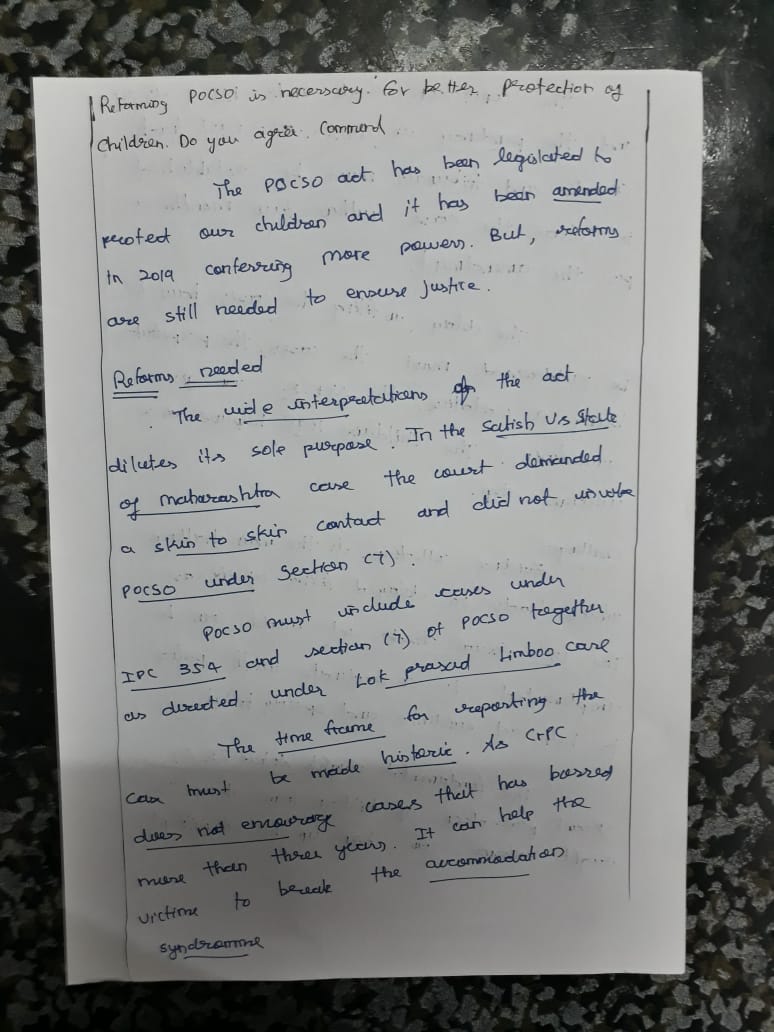 Reforming POCSO is necessary for better protection of
Children. Do you agree. Commend.
The POCSO act has been legislated to
protect our children and it has been amended
in 2019 conferring more powers. But, reforms
are still needed to ensure justice.
Reforms needed
The wide interpretations of the act
dilutes its sole purpose. In the Satish Vs State
of maharashtra case the court demanded
a skin to skin contact and did not invoke
POCSO under section (7).
POCSO must include cases under
IPC 354 and section (7) of POCSO together
as directed under Lok prasad Limboo case
The time frame for reporting the
case must be made historic. As CrPC
does not encourage cases that has passed
more than three years. It can help the
victime to break the accomodation
syndromme